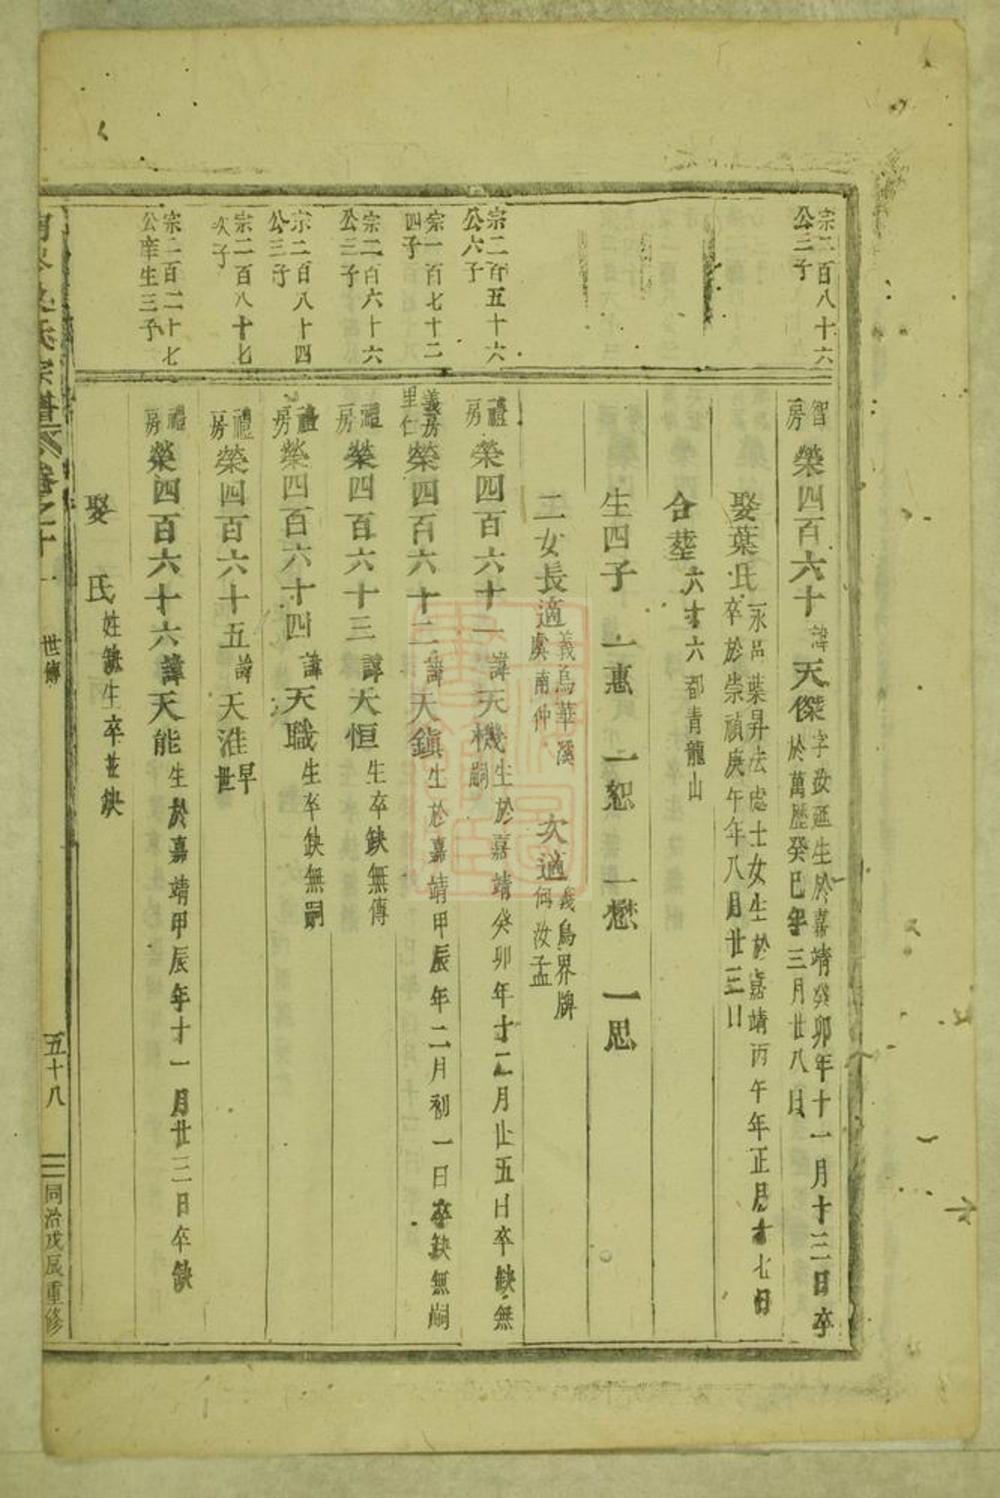 宗二百八十六
公三子
智房 榮四百六十 諱 天傑 字 生於嘉靖癸卯年十一月十三日卒
於萬歷癸巳年三月廿八日
娶葉氏 永 葉昇法處士女生於嘉靖丙午年正月 七日
卒於崇禎庚午年八月廿三日
合塟 六十六都青龍山
生四子 一惠 一恕 一懋 一思
二女長適 義烏華溪
虞南仲
次適 義烏界牌
何汝孟
宗二百五十六
公六子
禮房 榮四百六十一 諱 天機 生於嘉靖癸卯年十二月 五日卒缺無
嗣
宗一百七十二
四子
義房
里仁 榮四百六十二 諱 天鎮 生於嘉靖甲辰年二月初一日卒缺無嗣
宗二百六十六
公三子
禮房 榮四百六十三 諱 天恒 生卒缺無傳
宗二百八十四
公三子
禮房 榮四百六十四 諱 天職 生卒缺無嗣
宗二百八十七
次子
禮房 榮四百六十五 諱 天淮 早
世
宗二百二十七
公 生三子
禮房 榮四百六十六 諱 天能 生於嘉靖甲辰年十一月廿三日卒缺
娶 氏 姓缺生卒 缺
氏宗譜 卷之十一 世傳 五十八 同治戊辰重修